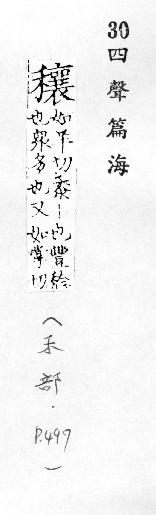 30 四聲篇海
穰
如羊切黍丨也豐
也眾多也又如掌切
(禾部・P.497)